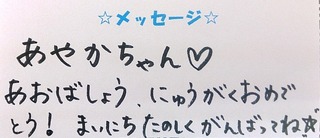 ☆メッセージ☆
あやかちゃん♡
あおばしょう、にゅうがくおめで
とう！ まいにちたのしくがんばってね☆